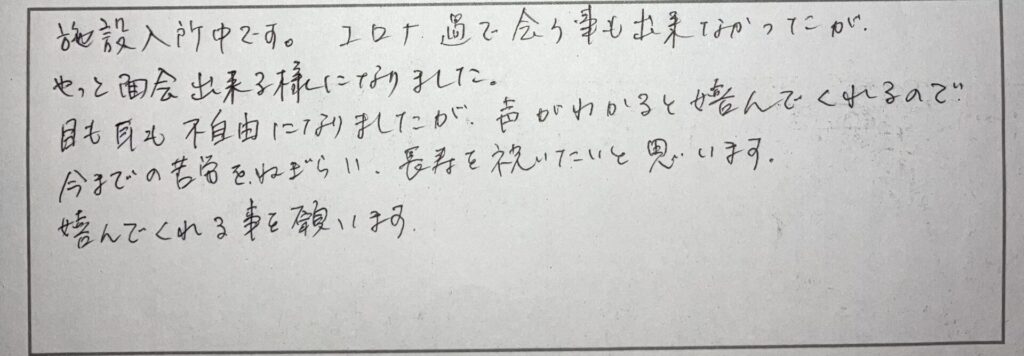 施設入所中です。 コロナ過で会う事も出来なかったが、
やっと面会出来る様になりました。
目も耳も不自由になりましたが、声がわかると嬉んでくれるので
今までの苦労をねぎらい、長寿を祝いたいと思います。
嬉んでくれる事を願います。